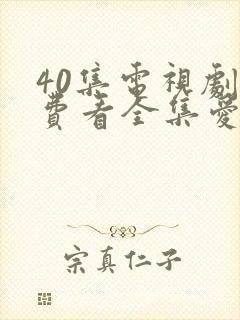 40集電視劇
費看全集愛
宗真仁子